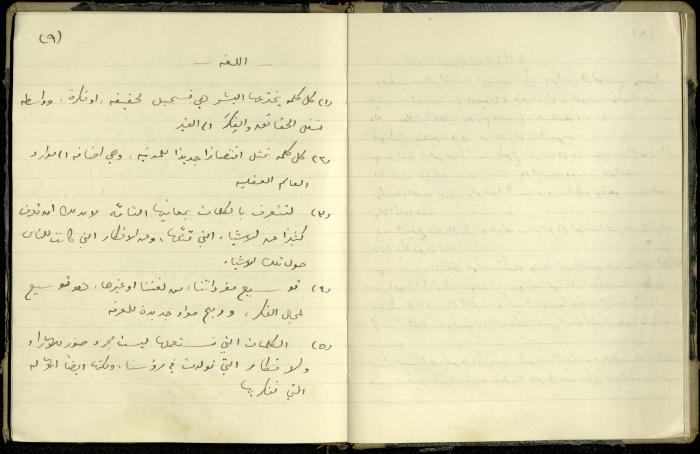 (٩)
- اللغة -
(١) كل كلمة يخترعها البشر هي تسجيل لحقيقة، او فكرة، وواسطة
لنقل الحقائق والفِكَر الى الغير
(٢) كل كلمة تمثل انتصارا جديدا للمدنية، وهي اضافة الى موارد
العالم العقلية
(٣) لنتعرف بالكلمات بمعانيها التامة لا بد لك ان تعرف
كثيرا عن الاشياء التي تمثلها، وعن الافكار التي كانت للناس
حول تلك الاشياء
(٤) توسيع مفرداتنا، من لغتنا او غيرها، هو توسيع
لمجال الفكر، وربح مواد جديدة للمعرفة
(٥) الكلمات التي نستعملها ليست مجرد صور للآراء
والافكار التي تولدت في رؤسنا، ولكنها ايضا الآلة
التي نفكر بها